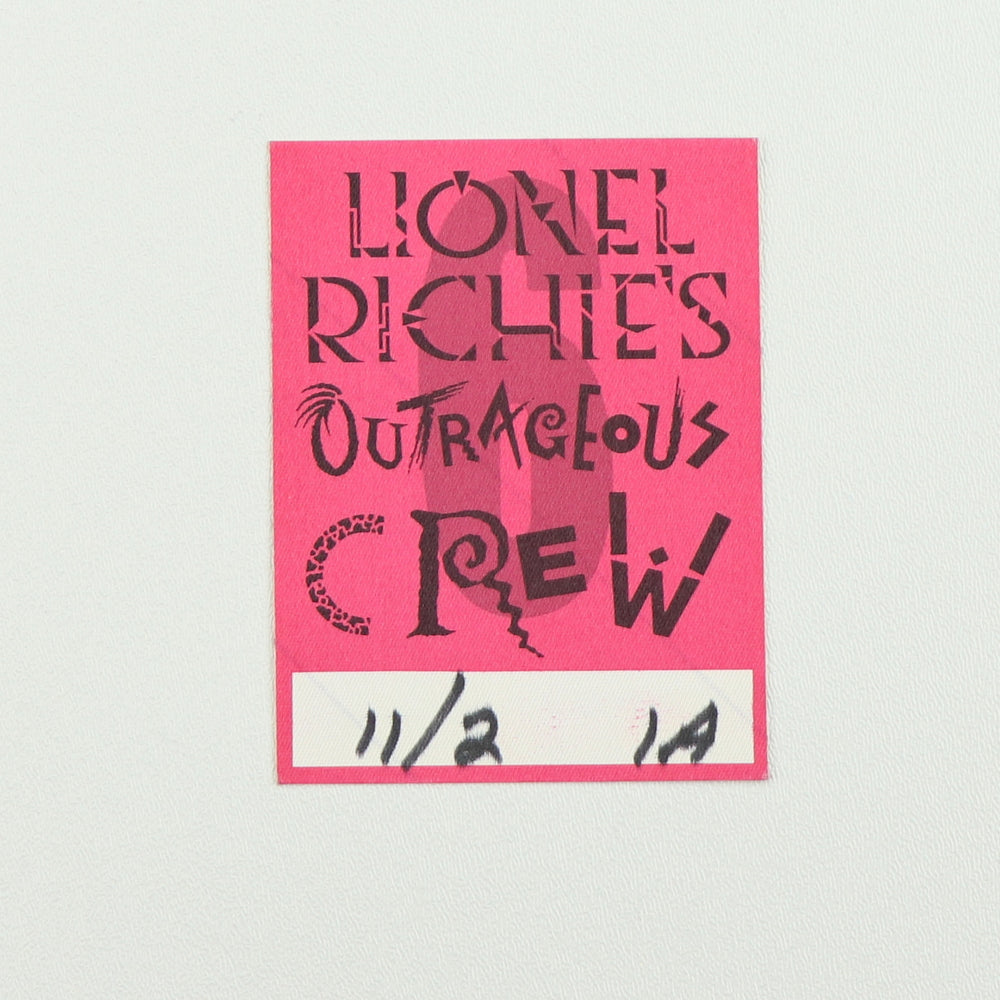 LIONEL
RICHIE'S
OUTRAGEOUS
CREW
11/2 1A